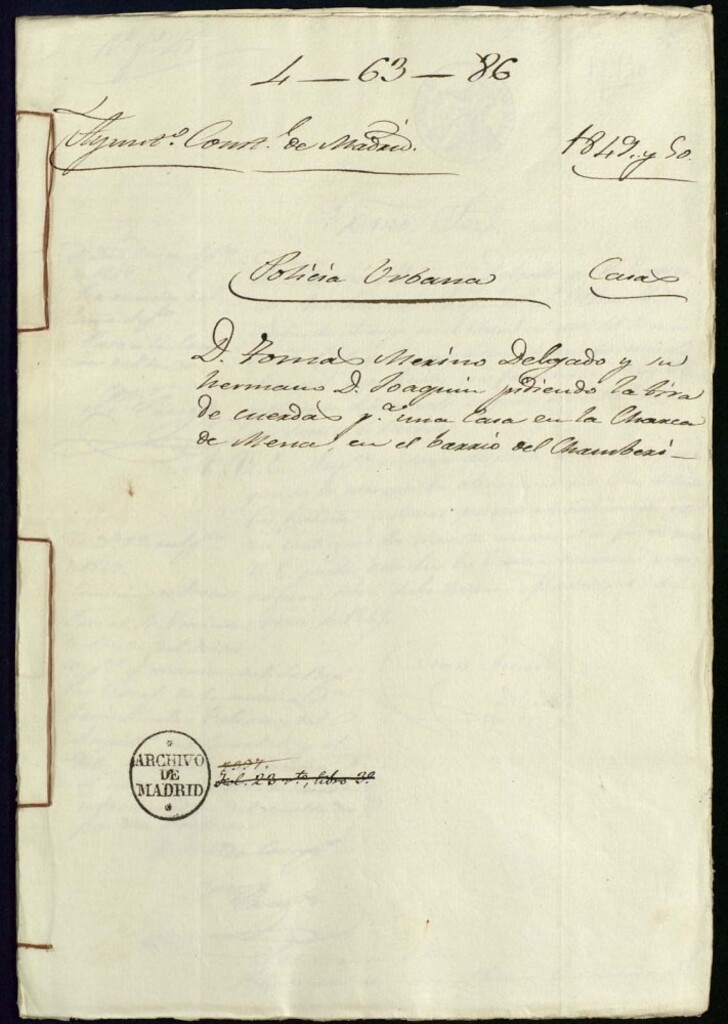 4 — 63 — 86
Ayunt.º Const.l de Madrid.
1849. y 50.
Policía Urbana
Casas
D. Tomás Merino Delgado y su
hermano D. Joaquin pidiendo la tira
de cuerdas p.a una Casa en la Charca
de Mena, en el barrio del Chamberí —
ARCHIVO
DE
MADRID
Fol. 23 vto, libro 3º